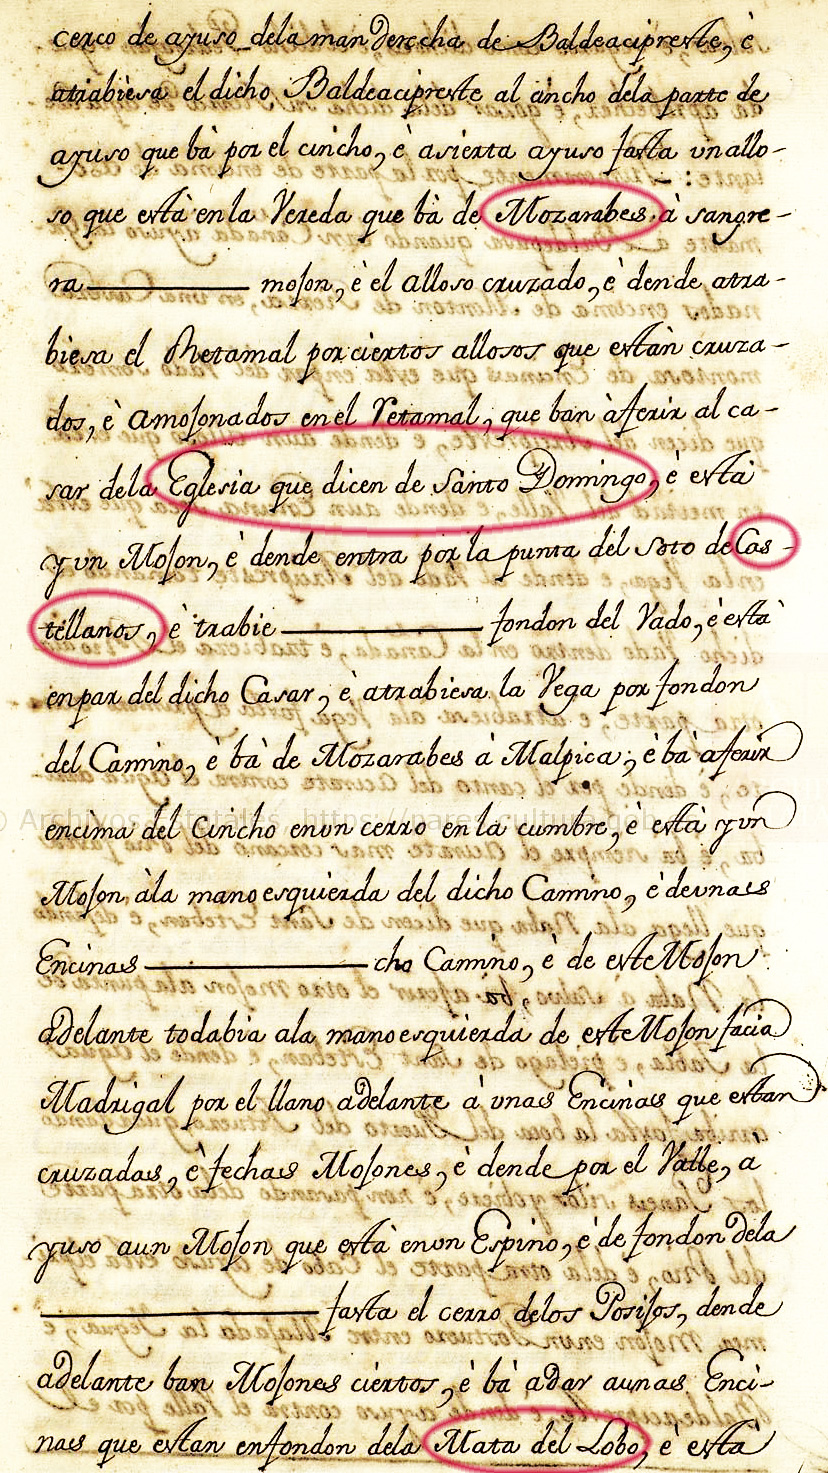 cerco de ayuso dela man derecha de Baldeacipreste, è
atrabiesa el dicho Baldeacipreste al cincho dela parte de
ayuso que bà por el cincho, è asierta ayuso fasta un allo-
so que està en la Vereda que bà de Mozarabes à sangre-
ra ———— moson, è el alloso cruzado, è dende atra-
biesa el Retamal por ciertos allosos que estàn cruza-
dos, è amosonados en el Retamal, que ban à ferir al ca-
sar dela Eglesia que dicen de Santo Domingo, è està
y un Moson, è dende entra por la punta del soto de Cas-
tellanos, è trabie ———— fondon del Vado, è està
en par del dicho Casar, è atrabiesa la Vega por fondon
del Camino, è bà de Mozarabes à Malpica; è bà a ferir
encima del Cincho en un cerro en la cumbre, è està y un
Moson àla mano esquierda del dicho Camino, è de unas
Encinas ———— cho Camino, è de este Moson
adelante todabia ala mano esquierda de este Moson facia
Madrigal por el llano adelante à unas Encinas que estan
cruzadas, è fechas Mosones, è dende por el Valle, a
yuso a un Moson que està en un Espino, è de fondon dela
———— fasta el cerro delos Posisos, dende
adelante ban Mosones ciertos, è bà a dar a unas Enci-
nas que estan en fondon dela Mata del Lobo, è està
© Archivos Estatales, https://pares.cultura.gob